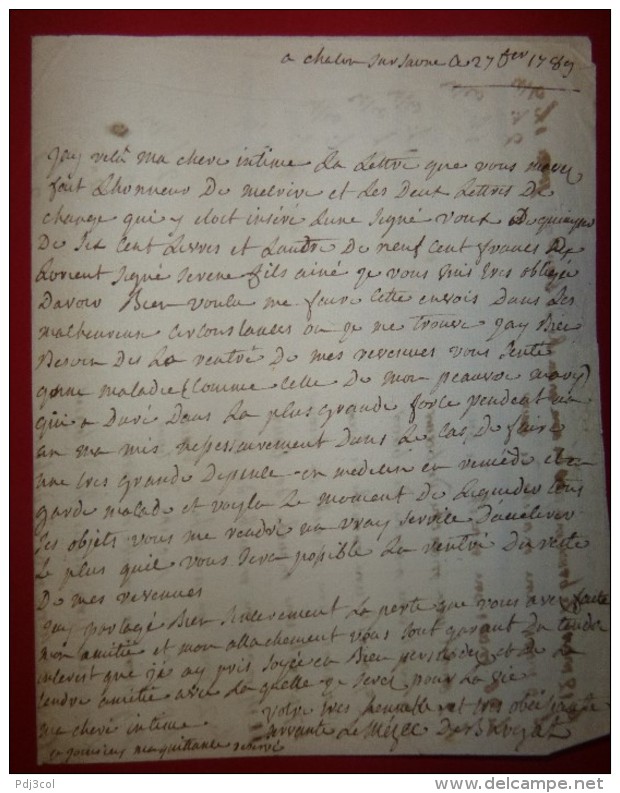 a chalon sur saone Ce 27 fer 1789
Jay resu ma chere intime La Lettre que vous mavez
fait Lhonneur De mecrire et Les Deux Lettres De
change qui y etoit inséré Lune signé vous
De set Cent Livres et Lautre De neuf Cent francs De
Lorient signé serene fils ainé je vous suis tres obligé
Davoir Bien voulu me faire Cette envois Dans Les
malheureux circonstances ou je me trouve jay Bien
Besoin De La rentré De mes revenues vous sente
qune maladie (Comme celle De mon peauvre mary)
qui a Duré Dans La plus grande force pendent un
an ma mis nessesairement Dans Le Cas De faire
une tres grande Depence en medesin en remède et
garde malade et voyla Le moment De Liquider tous
ses objets vous me rendré un vray service Dacelerer
Le plus quil vous sera posible La rentré Du reste
De mes revenues
Jay partagé Bien sincerement La perte que vous avez faite
mon amitié et mon attachement vous sont garant Du tendre
interest que jé ay pris soyée en Bien persuadé et De La
tendre amitié avec La quelle je serei pour La vie
ma chere intime
votre tres humble et tres obeissante
servante Le Mezec De
ma quittance
Pdj3col
delcampe.net